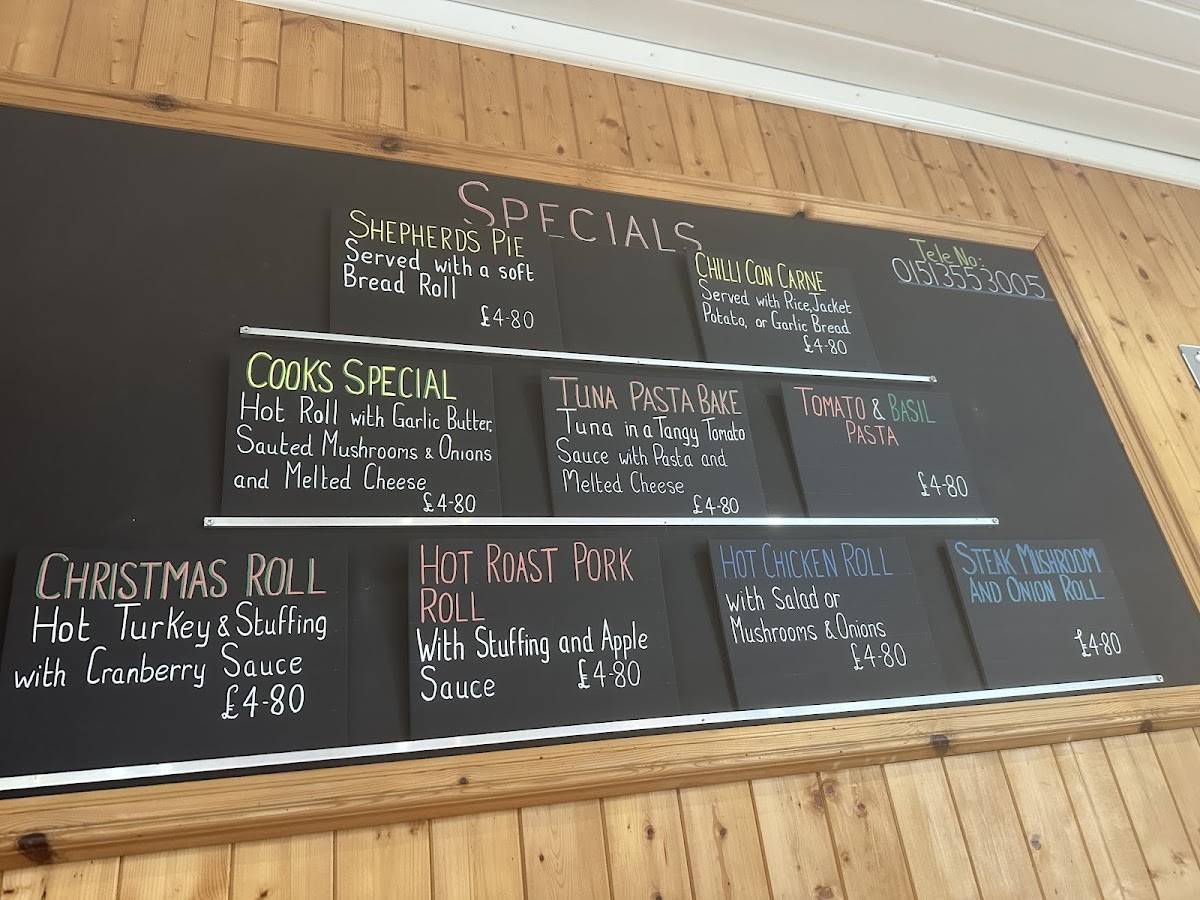 SPECIALS
SHEPHERDS PIE
Served with a soft
Bread Roll
£4-80
CHILLI CON CARNE
Served with Rice, Jacket
Potato, or Garlic Bread
£4-80
Tele No:
01513553005
COOKS SPECIAL
Hot Roll with Garlic Butter,
Sauted Mushrooms & Onions
and Melted Cheese
£4-80
TUNA PASTA BAKE
Tuna in a Tangy Tomato
Sauce with Pasta and
Melted Cheese
£4-80
TOMATO & BASIL
PASTA
£4-80
CHRISTMAS ROLL
Hot Turkey & Stuffing
with Cranberry Sauce
£4-80
HOT ROAST PORK
ROLL
With Stuffing and Apple
Sauce £4-80
HOT CHICKEN ROLL
with Salad or
Mushrooms & Onions
£4-80
STEAK MUSHROOM
AND ONION ROLL
£4-80